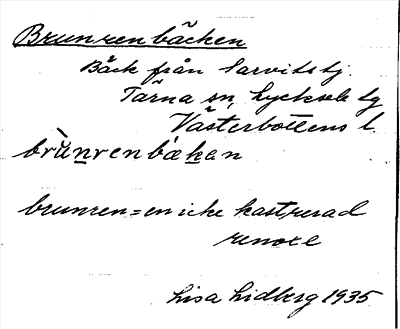 Brunrenbäcken
Bäck från Sarvitstj.
Tärna sn, Lycksele tg
Västerbottens l.
brùnrenbäkan
brunren = en icke kastrerad
renoxe
Lisa Lidberg 1935